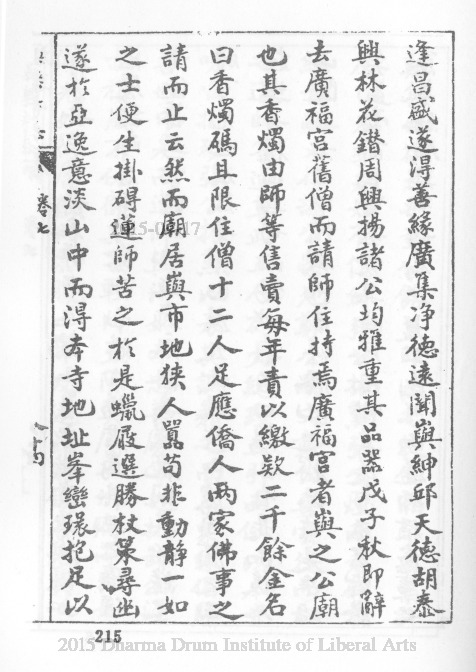 逢昌盛遂淂善緣廣集净德遠聞嶼紳邱天德胡泰
興林花鐕周興揚諸公均雅重其品器戊子秋即辭
去廣福宮舊僧而請師住持焉廣福宮者嶼之公廟
也其香燭由師等售賣每年責以繳欵二千餘金名
曰香燭碼且限住僧十二人足應僑人兩家佛事之
請而止云然而廟居嶼市地狹人囂苟非動靜一如
之士便生掛碍蓮師苦之於是蠟屐選勝杖策尋幽
遂於亞逸意淡山中而淂夲寺地址峯巒環抱足以
卷七
215
2015 Dharma Drum Institute of Liberal Arts